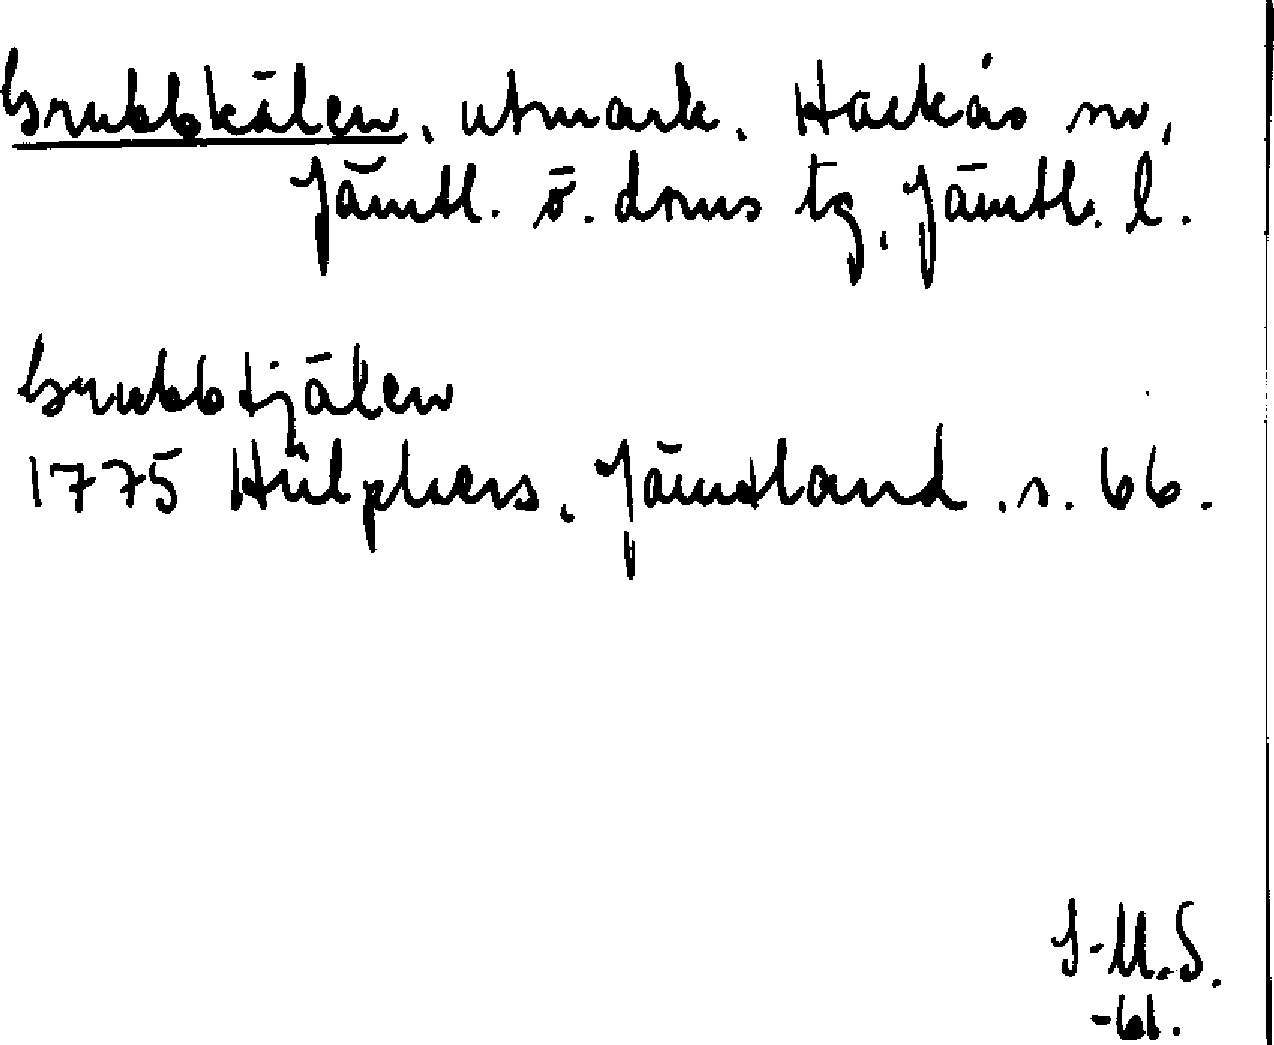 Grubbkälen, utmark, Hackås sn,
Jämtl. ö. doms tg, Jämtl. l.
Grubbtjälen
1775 Hülphers, Jämtland, s. 66.
J-M.S.
-61.